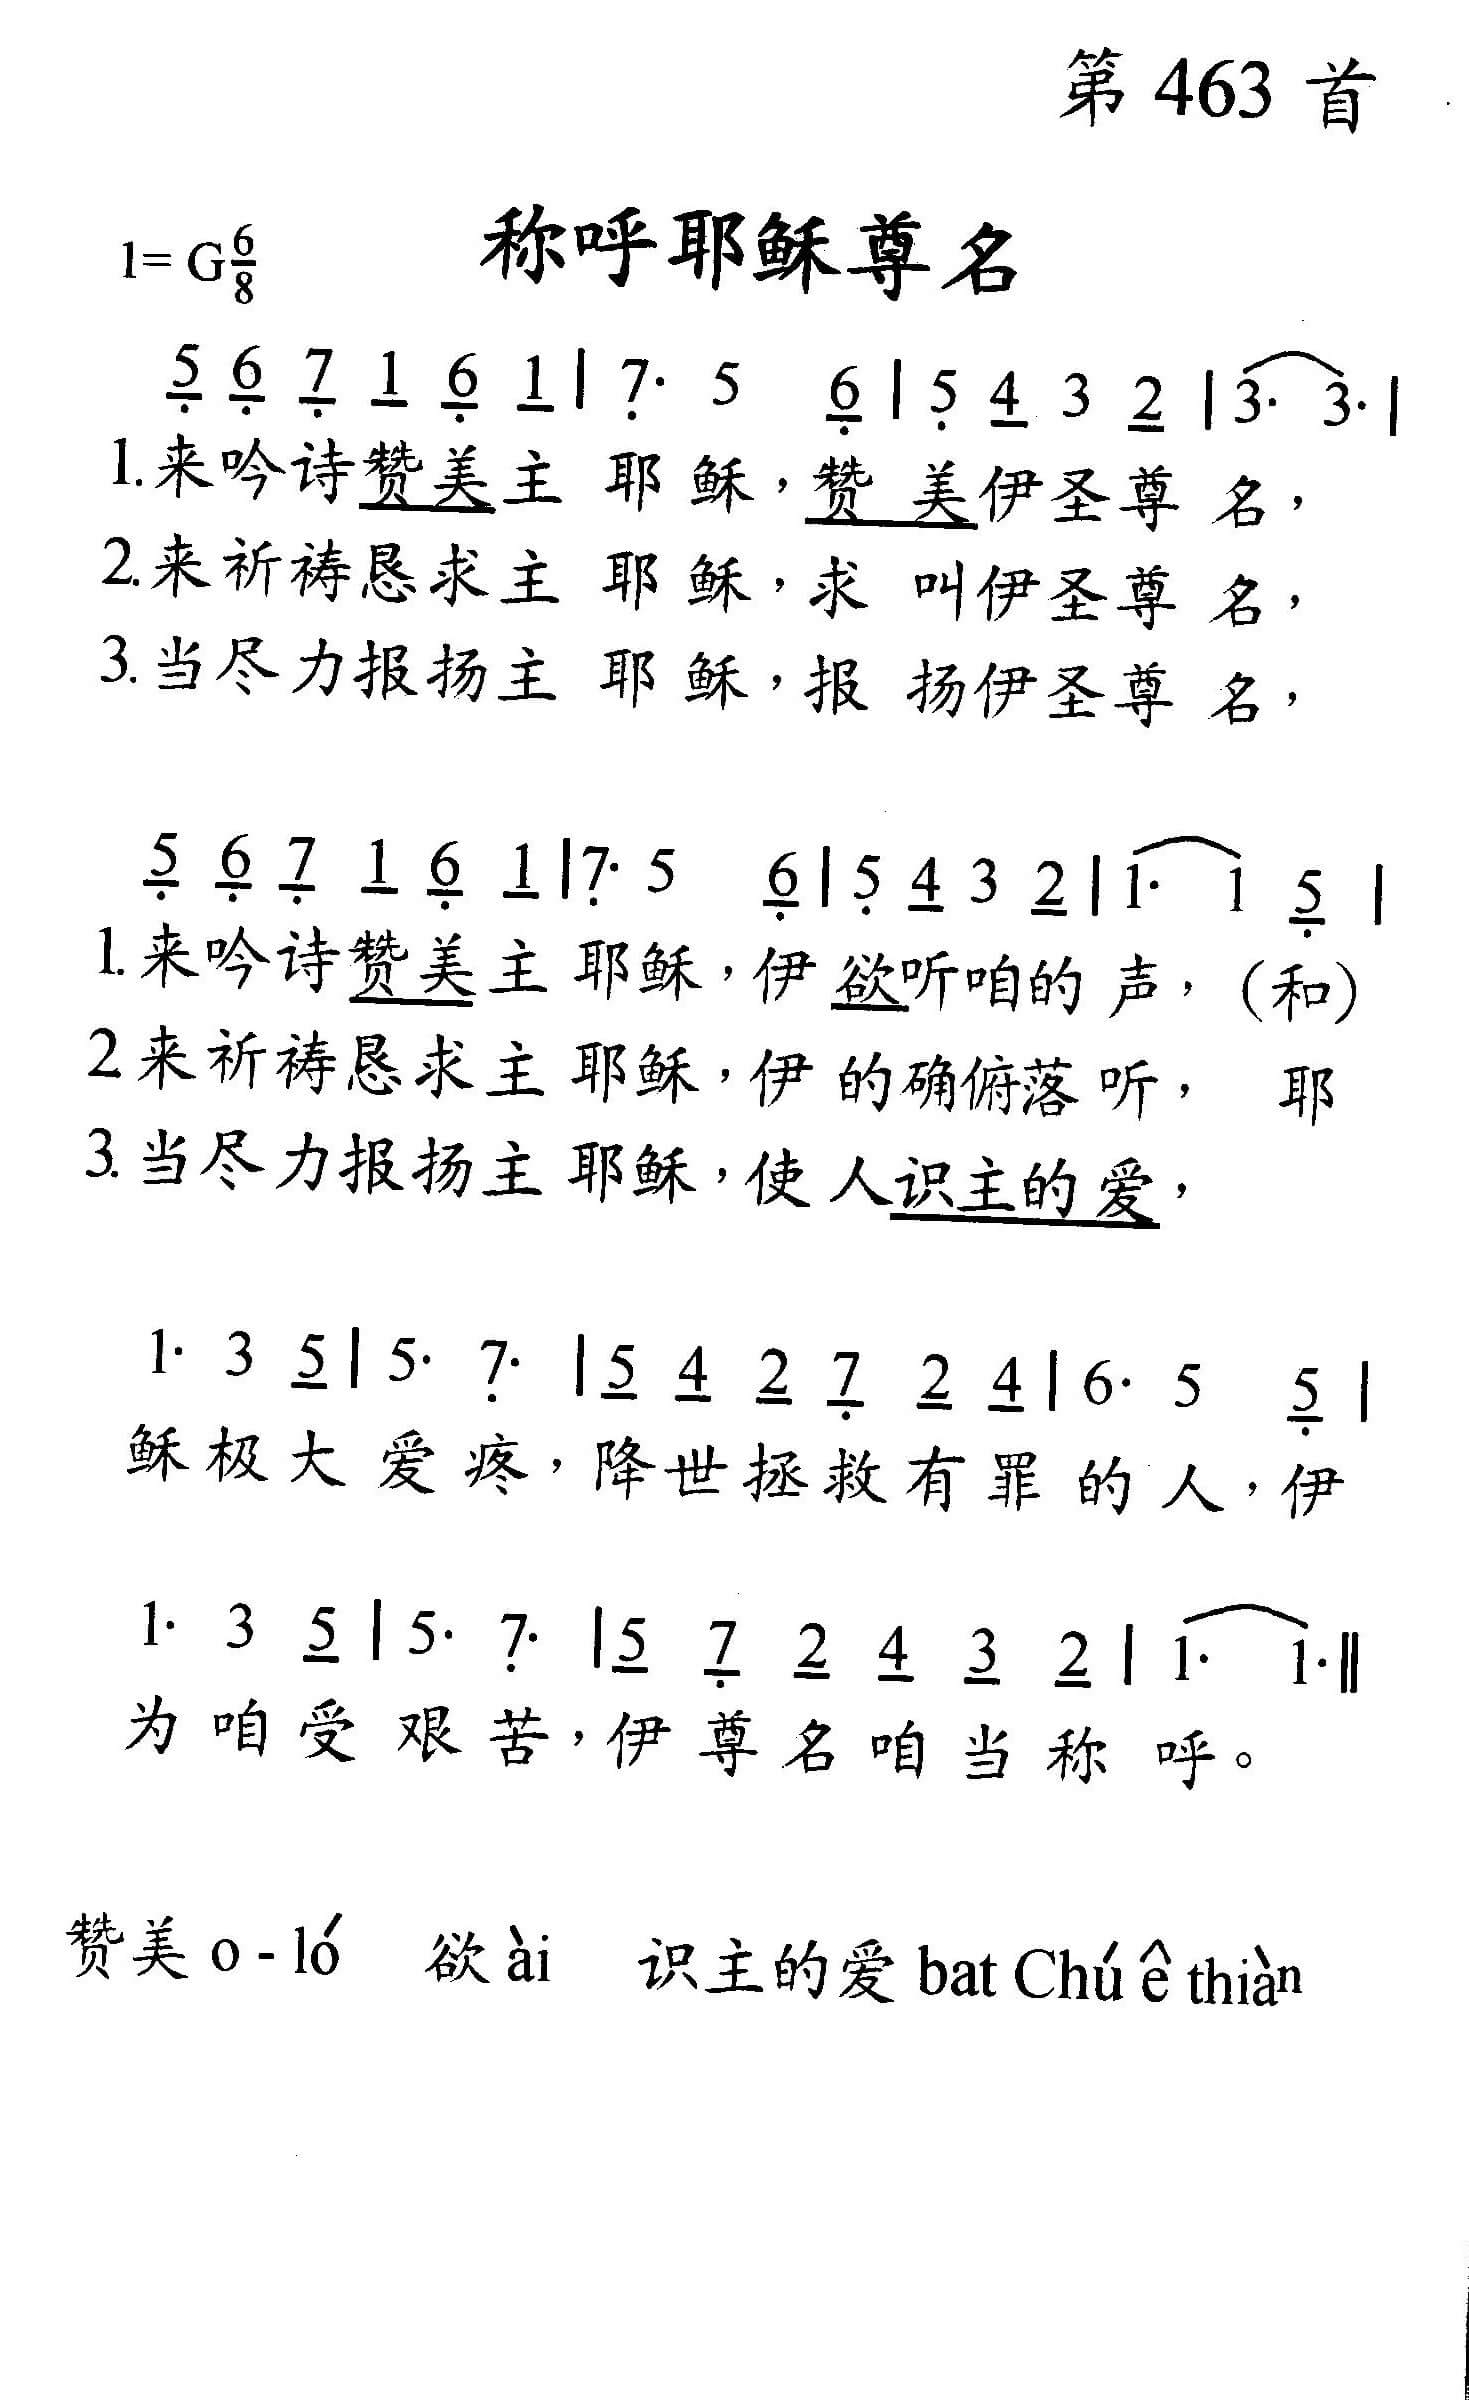 第 463 首
称呼耶稣尊名
1= G 6/8
5 6 7 1 6 1 | 7· 5 6 | 5 4 3 2 | 3· 3· |
1.来吟诗赞美主 耶稣，赞美伊圣尊名，
2.来祈祷恳求主 耶稣，求叫伊圣尊名，
3.当尽力报扬主 耶稣，报扬伊圣尊名，
5 6 7 1 6 1 | 7· 5 6 | 5 4 3 2 | 1· 1 5 |
1.来吟诗赞美主 耶稣，伊欲听咱的声，（和）
2 来祈祷恳求主 耶稣，伊的确俯落听， 耶
3.当尽力报扬主 耶稣，使人识主的爱，
1· 3 5 | 5· 7· | 5 4 2 7 2 4 | 6· 5 5 |
稣极大爱疼，降世拯救有罪的人，伊
1· 3 5 | 5· 7· | 5 7 2 4 3 2 | 1· 1· ‖
为咱受艰苦，伊尊名咱当称呼。
赞美 o - ló 欲 ài 识主的爱 bat Chú ê thiàⁿ